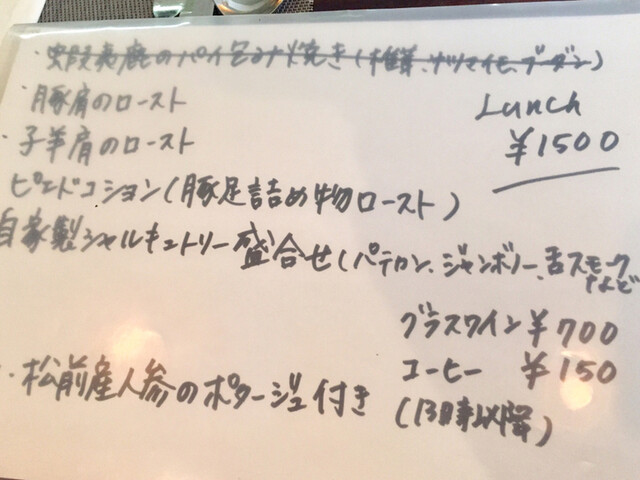 ・蝦夷鹿のパイ包み焼き(椎茸、サツマイモ、ブーダン)
・豚肩のロースト
Lunch
・子羊肩のロースト
¥1500
ピエドコション(豚足詰め物ロースト)
自家製シャルキュトリー盛合せ(パテカン、ジャンボノー、舌スモーク
など
グラスワイン ¥700
コーヒー ¥150
・松前産人参のポタージュ付き
(13時以降)